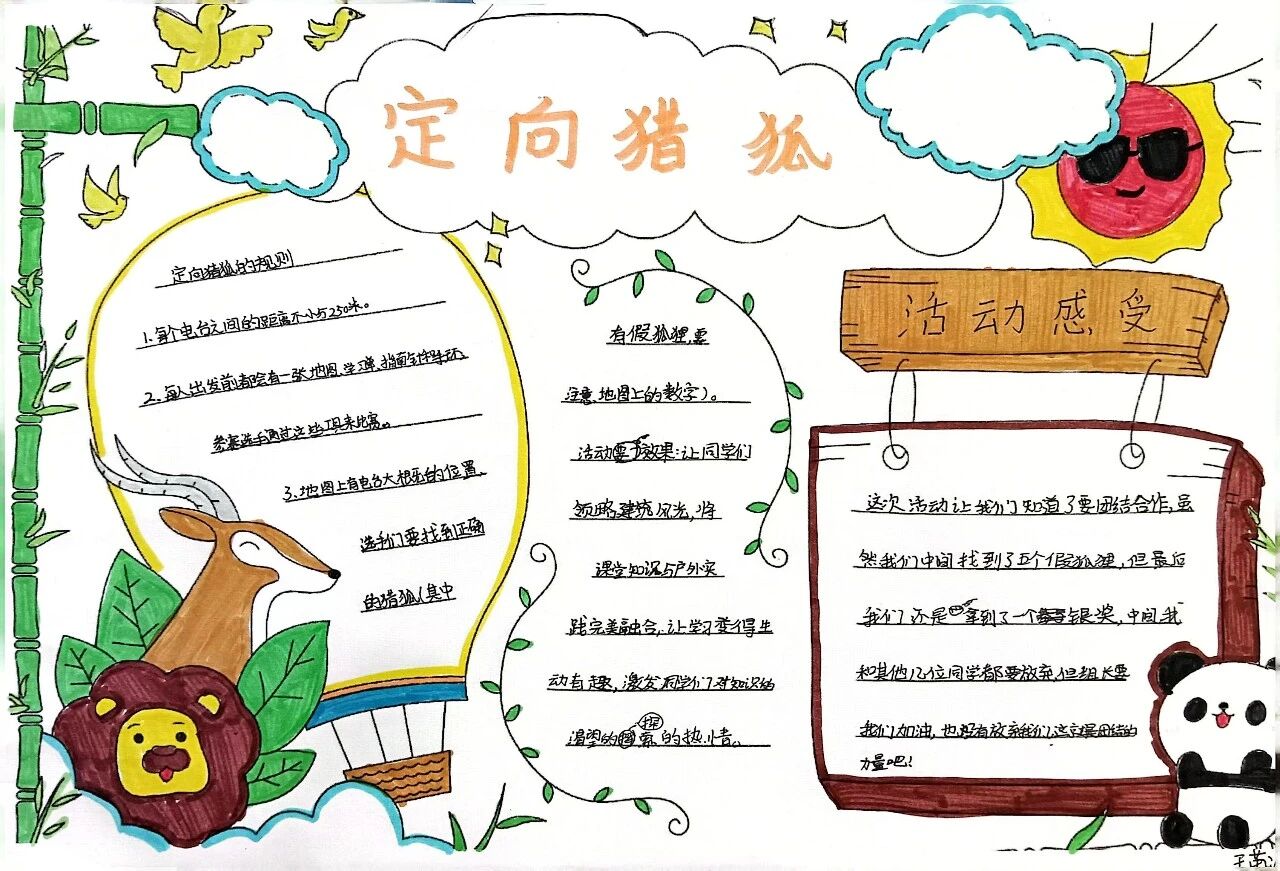 定向猎狐
定向猎狐的规则
1.每个电台之间的距离不小与250米。
2.每人出发前都会有一张地图.学弹.指南针.
参赛选手通过这些工具来比赛。
3.地图上有电台大概的位置、
选手们要找到正确
的猎狐(其中
有假狐狸,要
注意地图上的数字)。
活动要了效果:让同学们
领略建筑风光,将
课堂知识与户外实
践完美融合,让学习变得生
动有趣,激发同学们对知识的
渴望的探索的热情。
活动感受
这次活动让我们知道了要团结合作,虽
然我们中间找到了五个假狐狸,但最后
我们还是拿到了一个银奖,中间我
和其他几位同学都要放弃,但组长要
我们加油,也没有放弃我们,这就是团结的
力量吧!